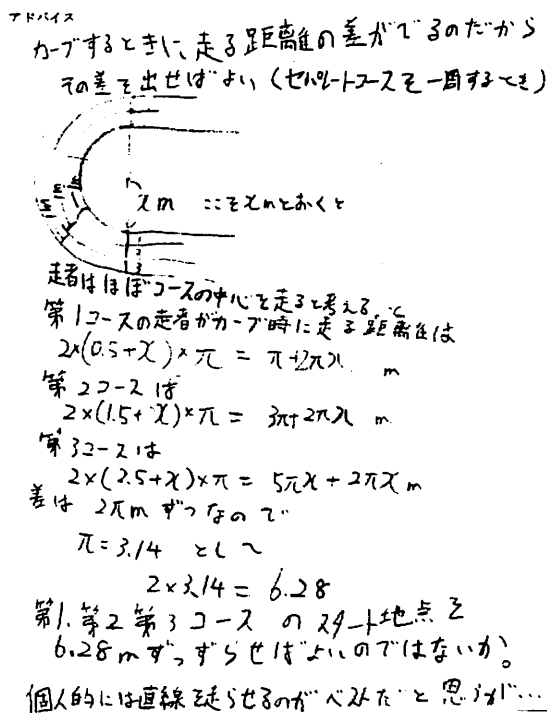 アドバイス
カーブするときに、走る距離の差がでるのだから
その差を出せばよい(セパレートコースを一周するとき)
xm ここをxmとおくと
走者はほぼコースの中心を走ると考えると
第1コースの走者がカーブ時に走る距離は
2×(0.5+x)×π = π+2πx m
第2コースは
2×(1.5+x)×π = 3π+2πx m
第3コースは
2×(2.5+x)×π = 5πx+2πx m
差は 2πm ずつなので
π=3.14 として
2×3.14=6.28
第1.第2 第3コース のスタート地点を
6.28mずつずらせばよいのではないか。
個人的には直線を走らせるのがベストだと思うが…